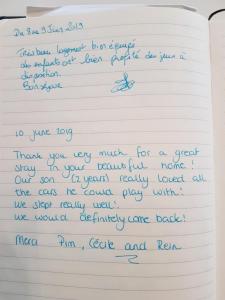 Du 8 au 9 Juin 2019
Très beau logement bien équipé
des enfants ont bien profité des jeux à
disposition.
Bon séjour
10 june 2019
Thank you very much for a great
stay in your beautiful home!
Our son (2 years) really loved all
the cars he could play with!
We slept really well!
We would definitely come back!
Merci Pim, Cécile and Rein